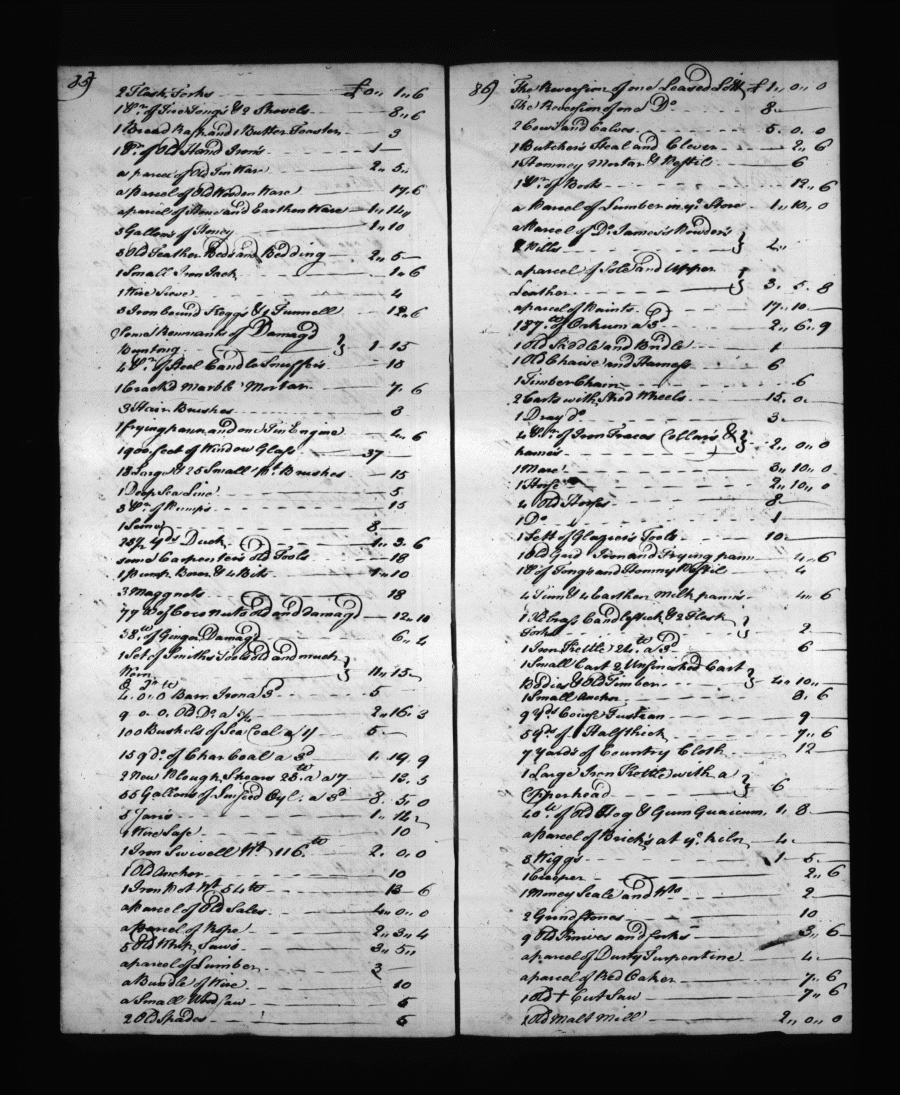 85)
2 Flesh Forks £0,, 1,, 6
1 Pr. of Fire Tong's & 2 Shovels 8,, 6
1 Bread Rasp and 1 Butter Toaster 3
1 Pr. of Old Hand Iron's 1
a parcel of Old Tin Ware 2,, 5,,
a parcel of Old Wooden Ware 17,, 6
a parcel of Stone and Earthen Ware 1,, 14,,
3 Gallons of Honey 1,, 10
3 Old Feather Beds and Bedding 2,, 5
1 Small Iron Jack 1,, 6
1 Wire Sieve 4
3 Iron bound Keggs & 1 Funnell 12,, 6
Some Remnants of Damagd
Bunting 1 - 15
4 Pr. of Steel Candle Snuffers 10
1 Crackd Marble Mortar 7,, 6
3 Hair Brushes 3
1 frying pann and one Tin Engine 4,, 6
1900 feet of Window Glass 37
18 Large & 25 Small Pt. Brushes 15
1 Deep Sea Line 5
3 Pr. of Pumps 15
8
yds Duck 1,, 3,, 6
some Carpenters old Tools 18
1 pump Borer & 4 Bits 1,, 10
3 Maggnets 18
77 lb of Coco Nuts Old and damagd 12,, 10
38 lb of Ginger Damagd 6,, 4
1 Set of Smiths Tools Old and much
Worn 11,, 15
4. 0. 0 Barr Iron a 5
9. 0. 0. Old Do. a 2,, 16,, 3
100 Bushels of Sea Coal a 1/ 5
15 of Char Coal a 1,, 19,, 9
2 New Plough Shears 25 lb a 12,, 5
55 Gallons of Linseed Oyl a 3d 8,, 5,, 0
5 Jarrs 1,, 14
1 Wire Safe 10
1 Iron Swivell Wt. 116 lb 2,, 0,, 0
1 Old Anchor 10
1 Iron Pot Wt. 54 lb 13 - 6
a parcel of Old Sales 4,, 0,, 0
a parcel of Rope 2,, 3,, 4
5 Old Whip Saws 3,, 5,,
a parcel of Lumber 3
a Bundle of Wire 10
a Small Wood Saw 5
2 Old Spades 6
86)
The Reversion of one Leased Lott £1,, 0,, 0
The Reversion of one Do. 8
2 Cows and Calves 5,, 0,, 0
1 Butchers Steal and Clever 2,, 6
1 Hommey Mortar & Pestil 6
1 Pr. of Boots 12,, 6
a Parcel of Lumber in ye. Store 1,, 10,, 0
a Parcel of Dr. James's Powders
& Pills 2,,
a parcel of Sole and Upper
Leather 3,, 5,, 8
a parcel of Paints 17,, 10
187 lb of Oakum a 3d 2,, 6,, 9
1 Old Saddle and Bridle 1
1 Old Chaise and Harness 6
1 Timber Chain 6
2 Carts with Shod Wheels 15,, 0
1 Dray do 3
4 Pr. of Iron Traces Collar's &
hames 2,, 0,, 0
1 Mare 3,, 10,, 0
1 Horse 2,, 10,, 0
4 Old Horses 8
1 Do 1
1 Sett of Glazier's Tools 10
1 Old Grid Iron and Frying pann 4,, 6
1 Pr of Tongs and Hommy Pestil 4
4 Tinn & 4 Earthen Milk panns 4,, 6
1 Old brass Candlestick & 2 Flesh
Forks 2
1 Iron Kettle 24 lb a 3d 6
1 Small Cart 2 Unfinished Cart
Bodies & Old Timber 4,, 10,,
1 Small Anchor 3,, 6
9 yds Course Fustian 9
5 yds of Halfthick 7,, 6
7 yards of Country Cloth 12
1 Large Iron Kettle with a
Copper head 6
40 lb of old Hog & Gum Guaicum 1,, 8
a parcel of Brick's at ye. kiln 4
3 Wiggs 1 5
1 Creeper 2,, 6
1 Money Scale and Wts 2
2 Grindstones 10
9 Old Knives and forks 3,, 6
a parcel of Dusty Turpentine 4
a parcel of Red Oaker 7,, 6
1 Old + Cut Saw 7,, 6
1 Old Malt Mill 2,, 0,, 0